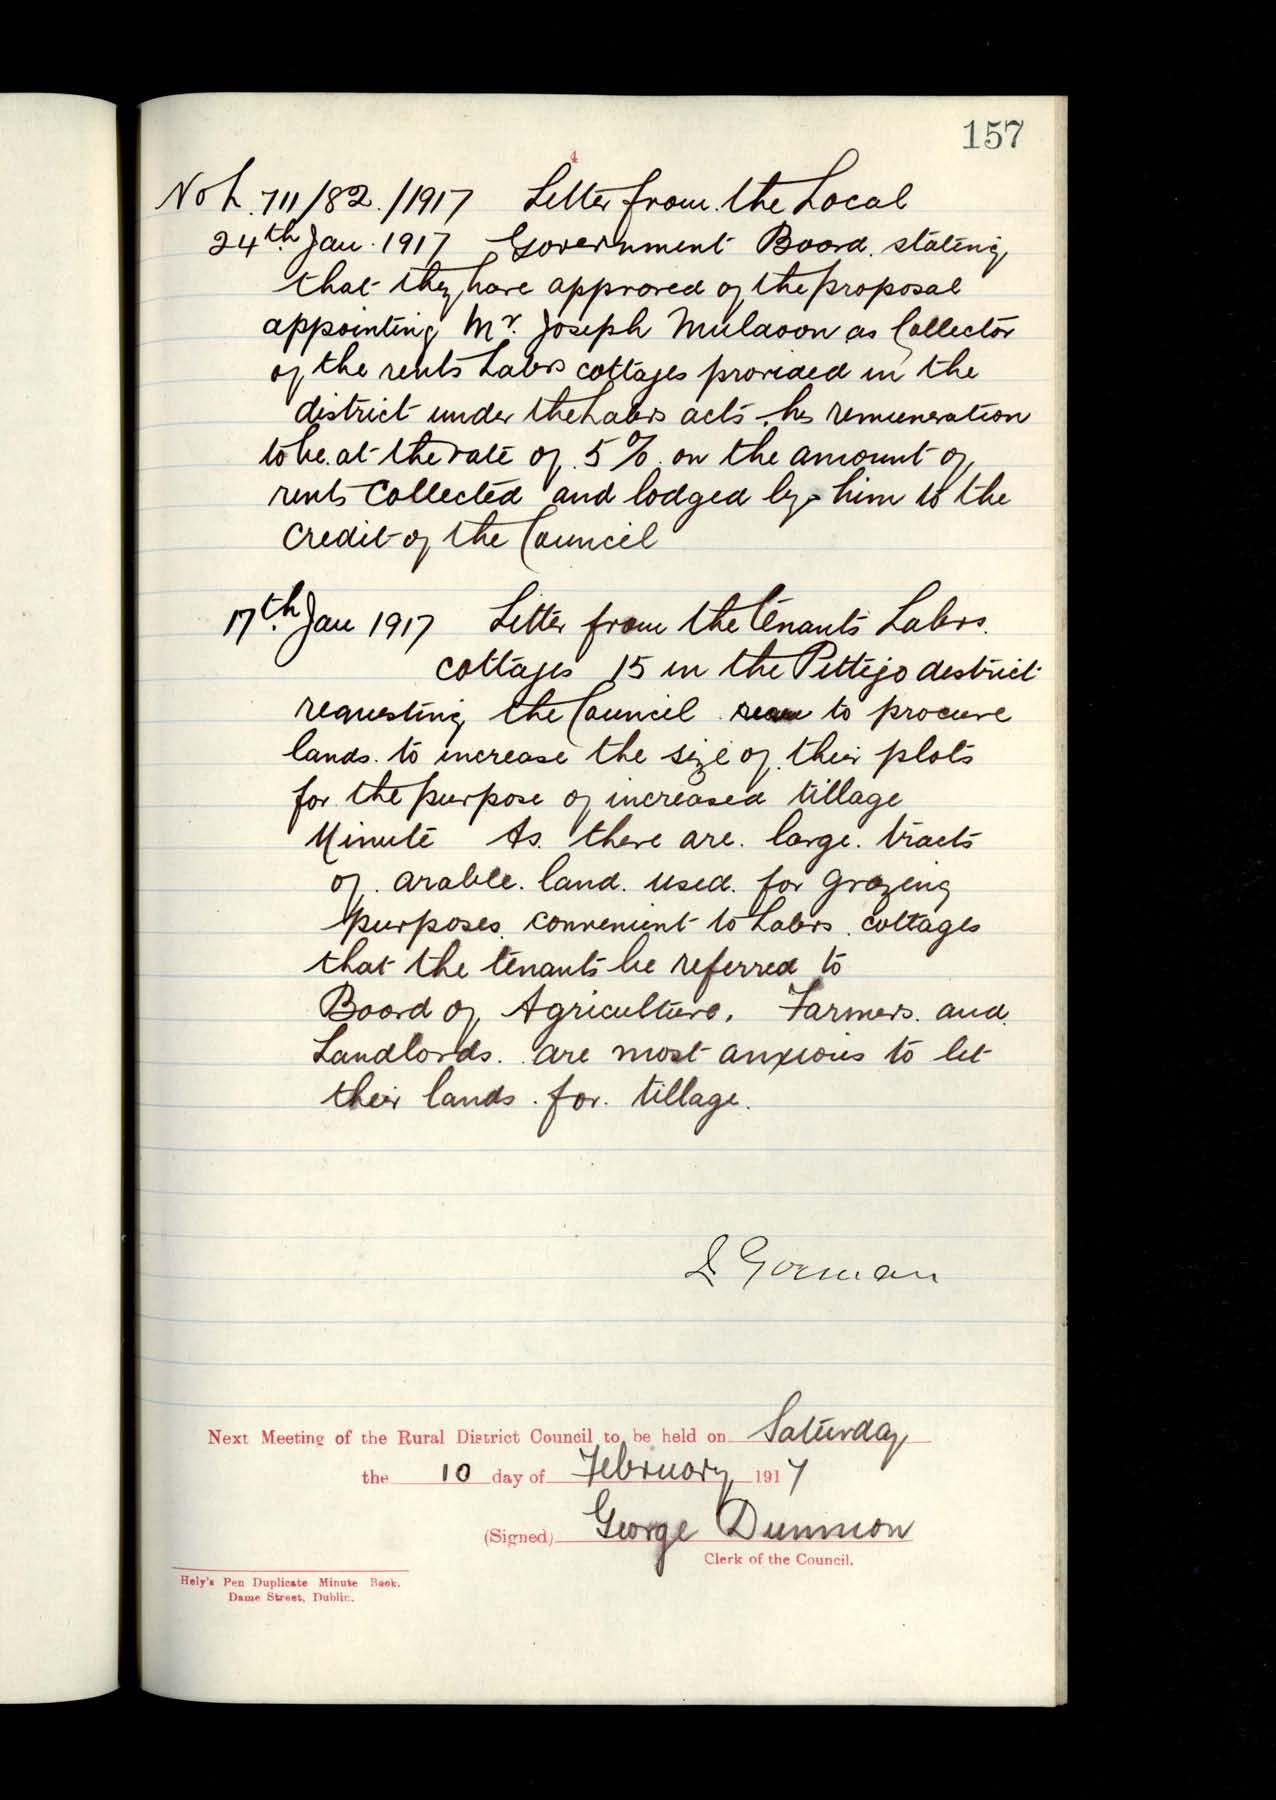 157
4
No L. 711/82./1917 Letter from the Local
24th Jan. 1917 Government Board. stating
that they have approved of the proposal
appointing Mr. Joseph Muldoon as Collector
of the rents Labrs cottages provided in the
district under the Labrs acts. his remuneration
to be at the rate of 5% on the amount of
rents collected and lodged by him to the
Credit of the Council
17th Jan 1917 Letter from the tenants Labrs.
cottages 15 in the Pettigo district
requesting the Council to procure
lands. to increase the size of their plots
for the purpose of increased tillage
Minute As. there are. large. tracts
of. arable. land. used. for grazing
purposes. convenient to Labrs. cottages
that the tenants be referred to
Board of Agriculture. Farmers. and
Landlords. are most anxious to let
their lands. for. tillage.
Gorman
Next Meeting of the Rural District Council to be held on Saturday
the 10 day of February 1917
(Signed) George Dunnion
Clerk of the Council.
Hely's Pen Duplicate Minute Book.
Dame Street, Dublin.